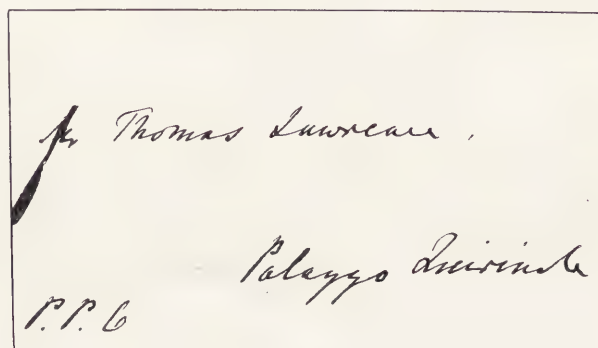 Sr Thomas Lawrence.
Palazzo Quirinale
P.P.C